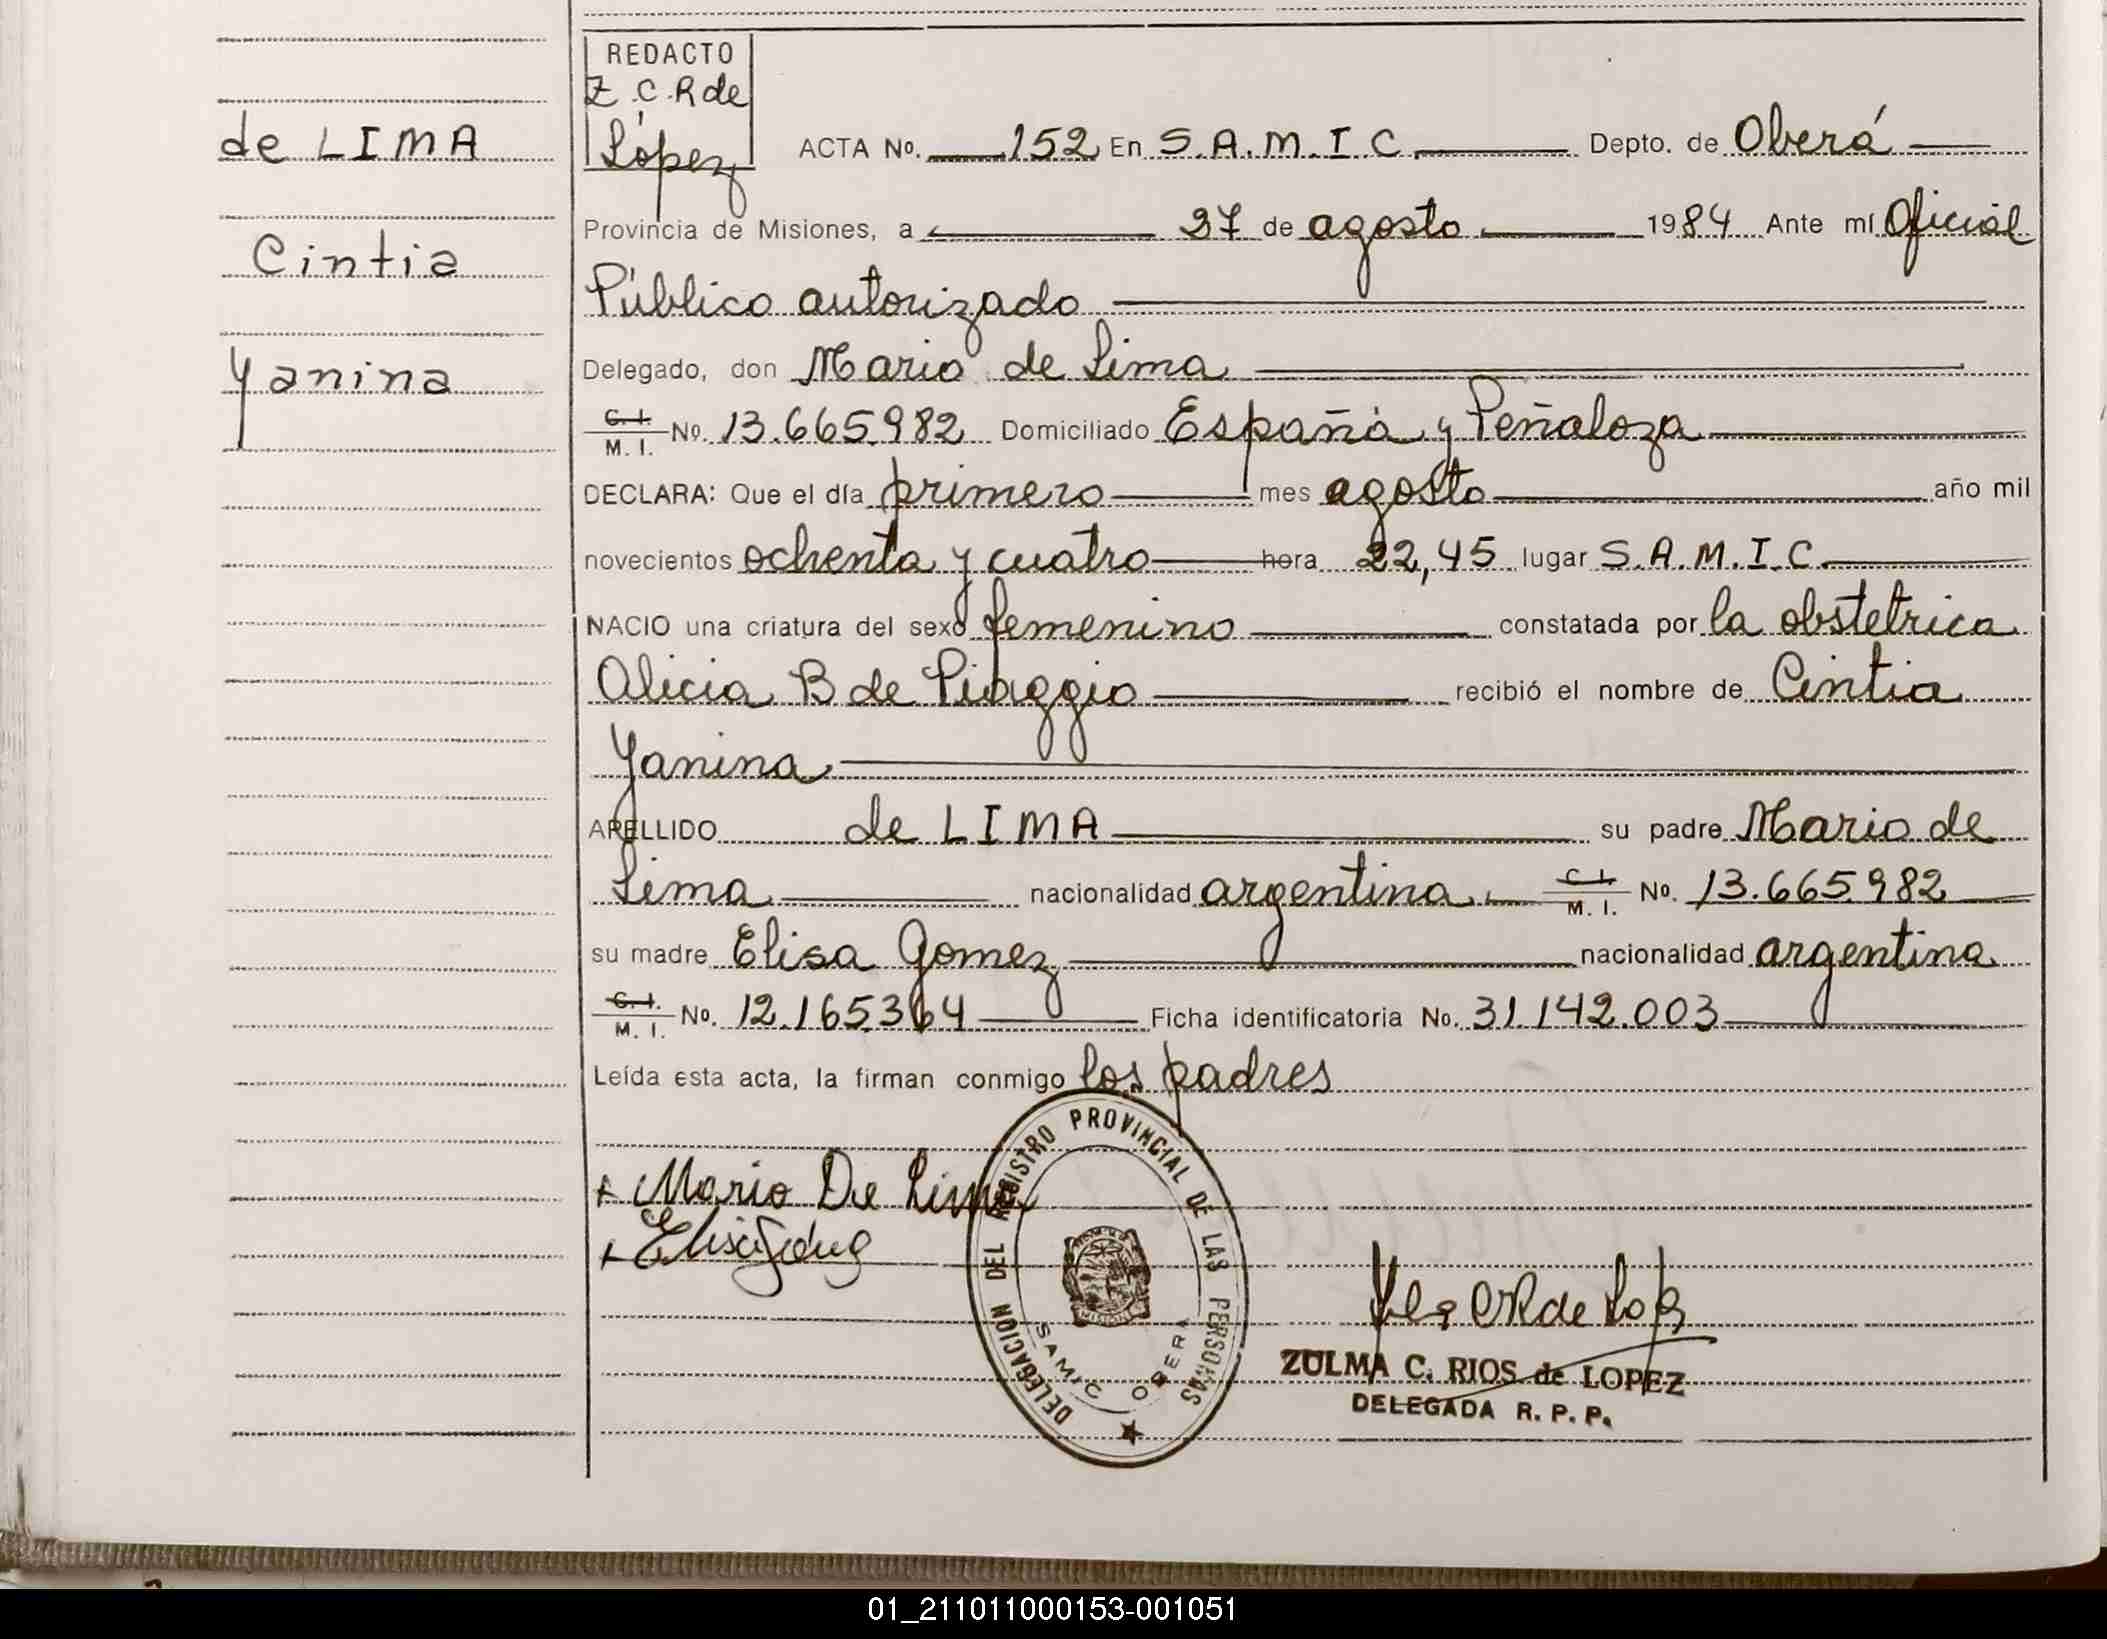 de LIMA
Cintia
Yanina
REDACTO
Z.C.R de
López
ACTA No. 152 En S.A.M.I.C. Depto. de Oberá
Provincia de Misiones, a 27 de agosto 1984 Ante mí Oficial
Público autorizado
Delegado, don Mario de Lima
C. I. / M. I. No. 13.665.982 Domiciliado España y Peñaloza
DECLARA: Que el día primero mes agosto año mil
novecientos ochenta y cuatro hora 22,45 lugar S.A.M.I.C.
NACIO una criatura del sexo femenino constatada por la obstetrica
Alicia B de Piaggio recibió el nombre de Cintia
Yanina
APELLIDO de LIMA su padre Mario de
Lima nacionalidad argentina C. I. / M. I. No. 13.665.982
su madre Elisa Gomez nacionalidad argentina
C. I. / M. I. No. 12.165.364 Ficha identificatoria No. 31.142.003
Leída esta acta, la firman conmigo los padres
+ Mario De Lima
DELEGACION DEL REGISTRO PROVINCIAL DE LAS PERSONAS
SAMIC OBERA
ZULMA C. RIOS de LOPEZ
DELEGADA R. P. P.
01_211011000153-001051